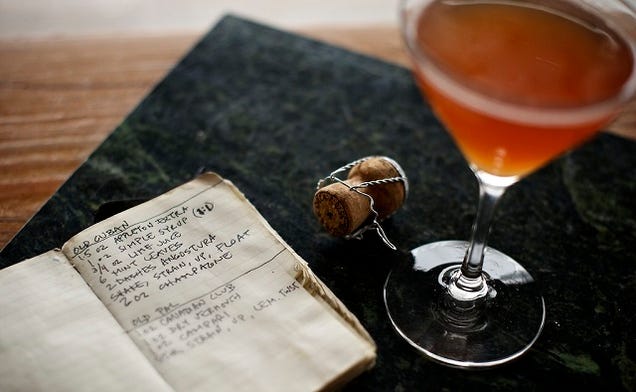 OLD CUBAN
1.5 OZ APPLETON EXTRA
1 OZ SIMPLE SYRUP
3/4 OZ LIME JUICE
6 MINT LEAVES
2 DASHES ANGOSTURA
SHAKE, STRAIN, UP, FLOAT
2 OZ CHAMPAGNE
OLD PAL
OZ CANADIAN CLUB
OZ DRY VERMOUTH
OZ CAMPARI
STRAIN, UP, LEM. TWIST